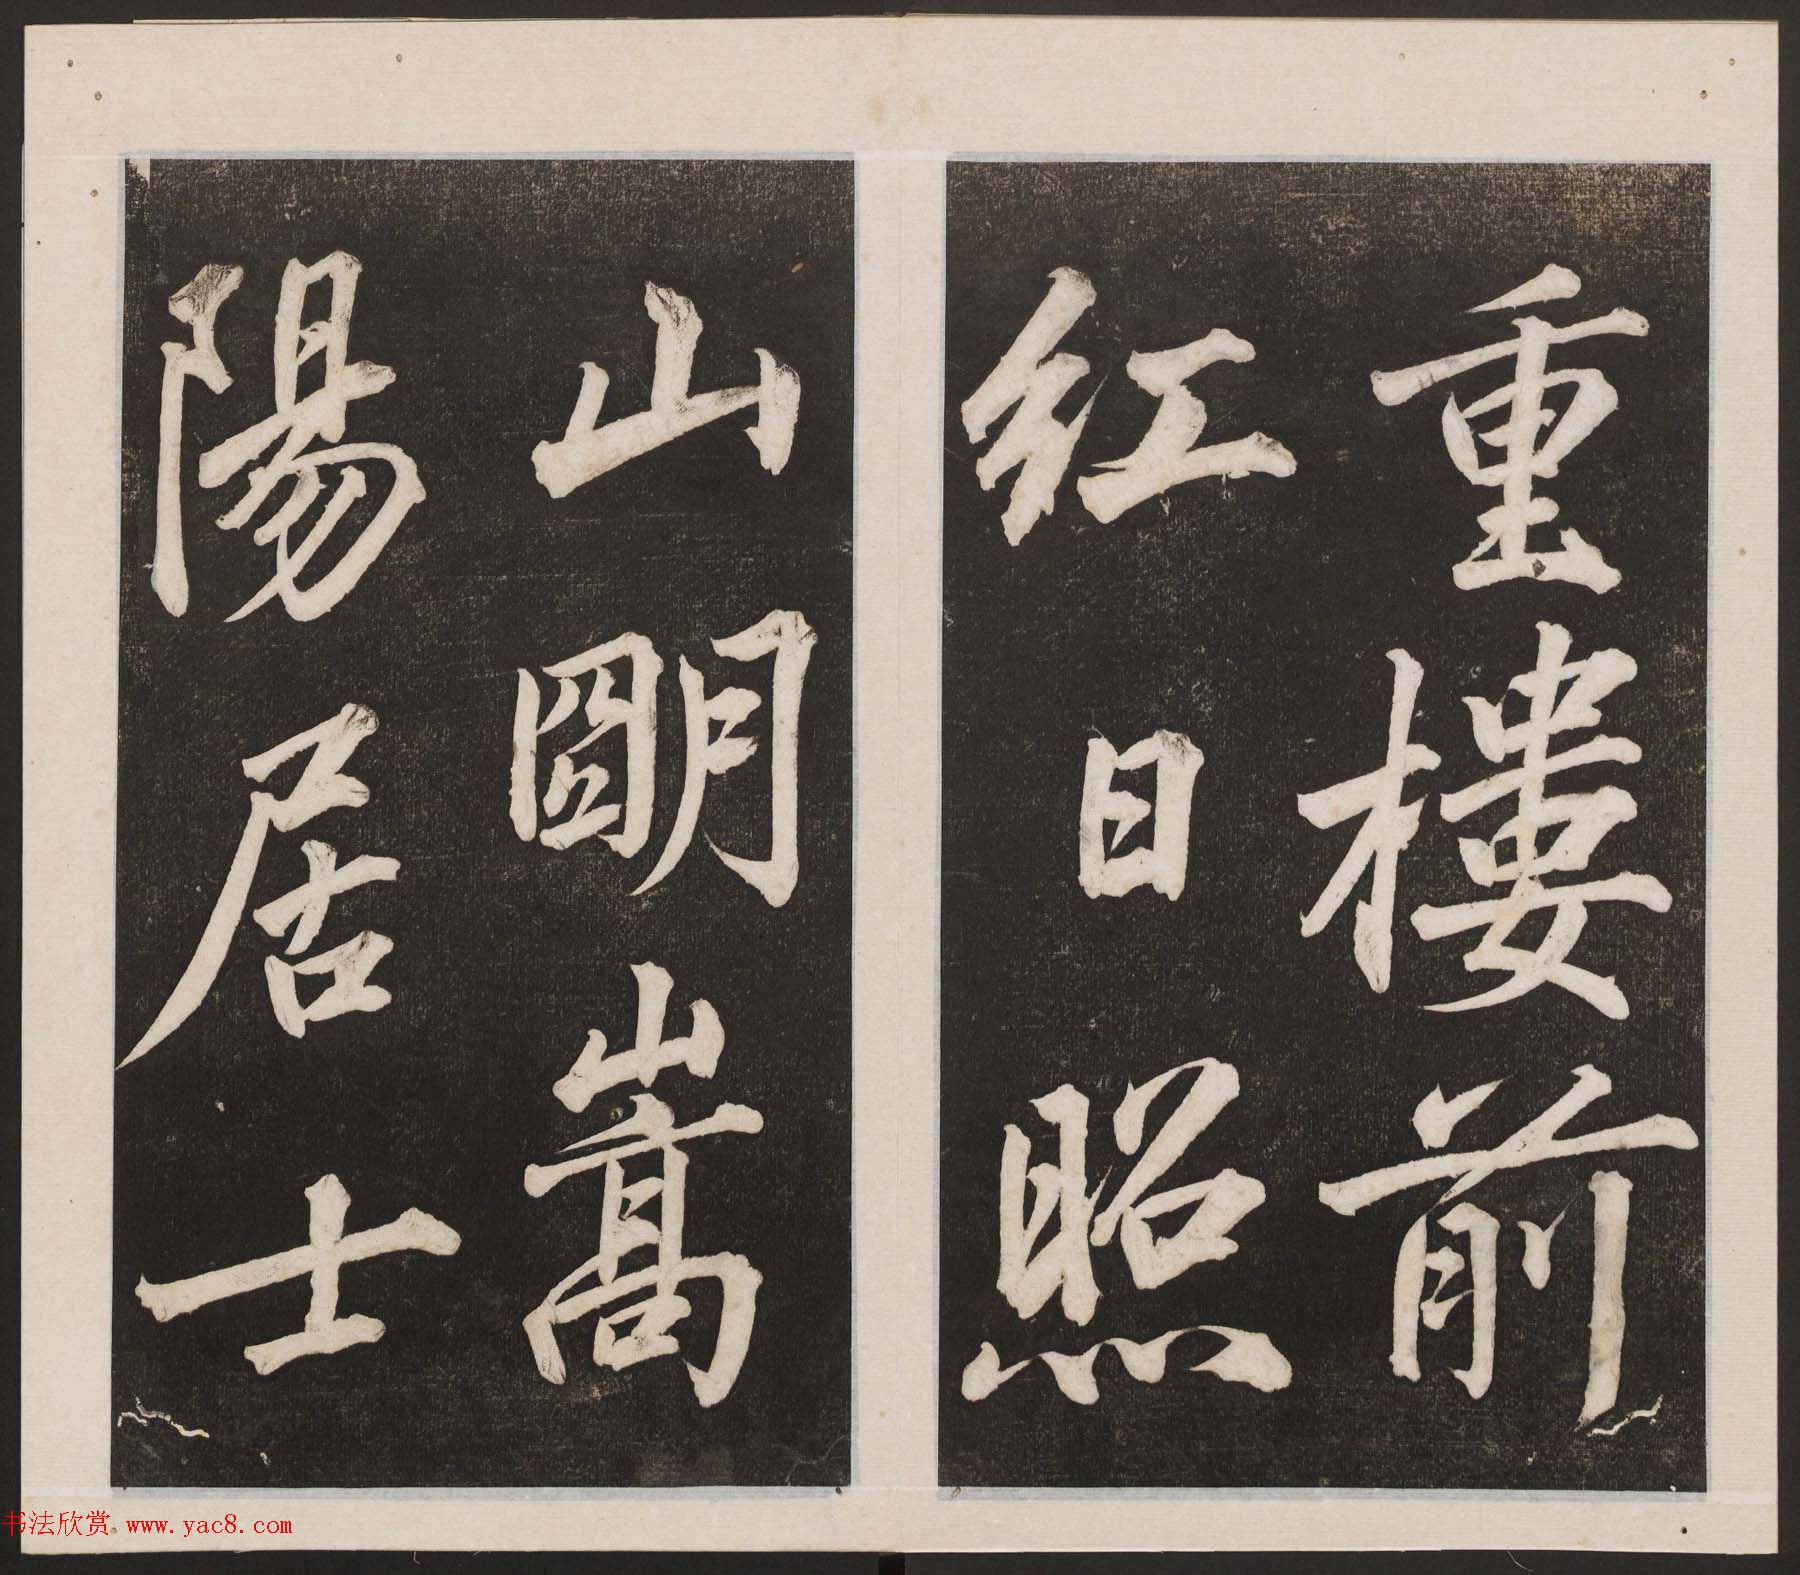 重樓前
紅日照
山朙嵩
陽居士
书法欣赏 www.yac8.com